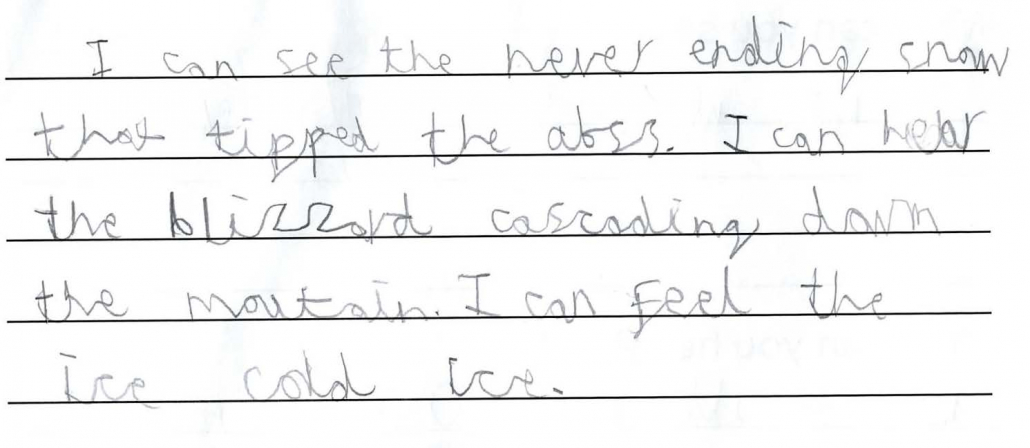 I can see the never ending snow
that tipped the abss. I can hear
the blizzard cascading down
the moutain. I can feel the
ice cold ice.